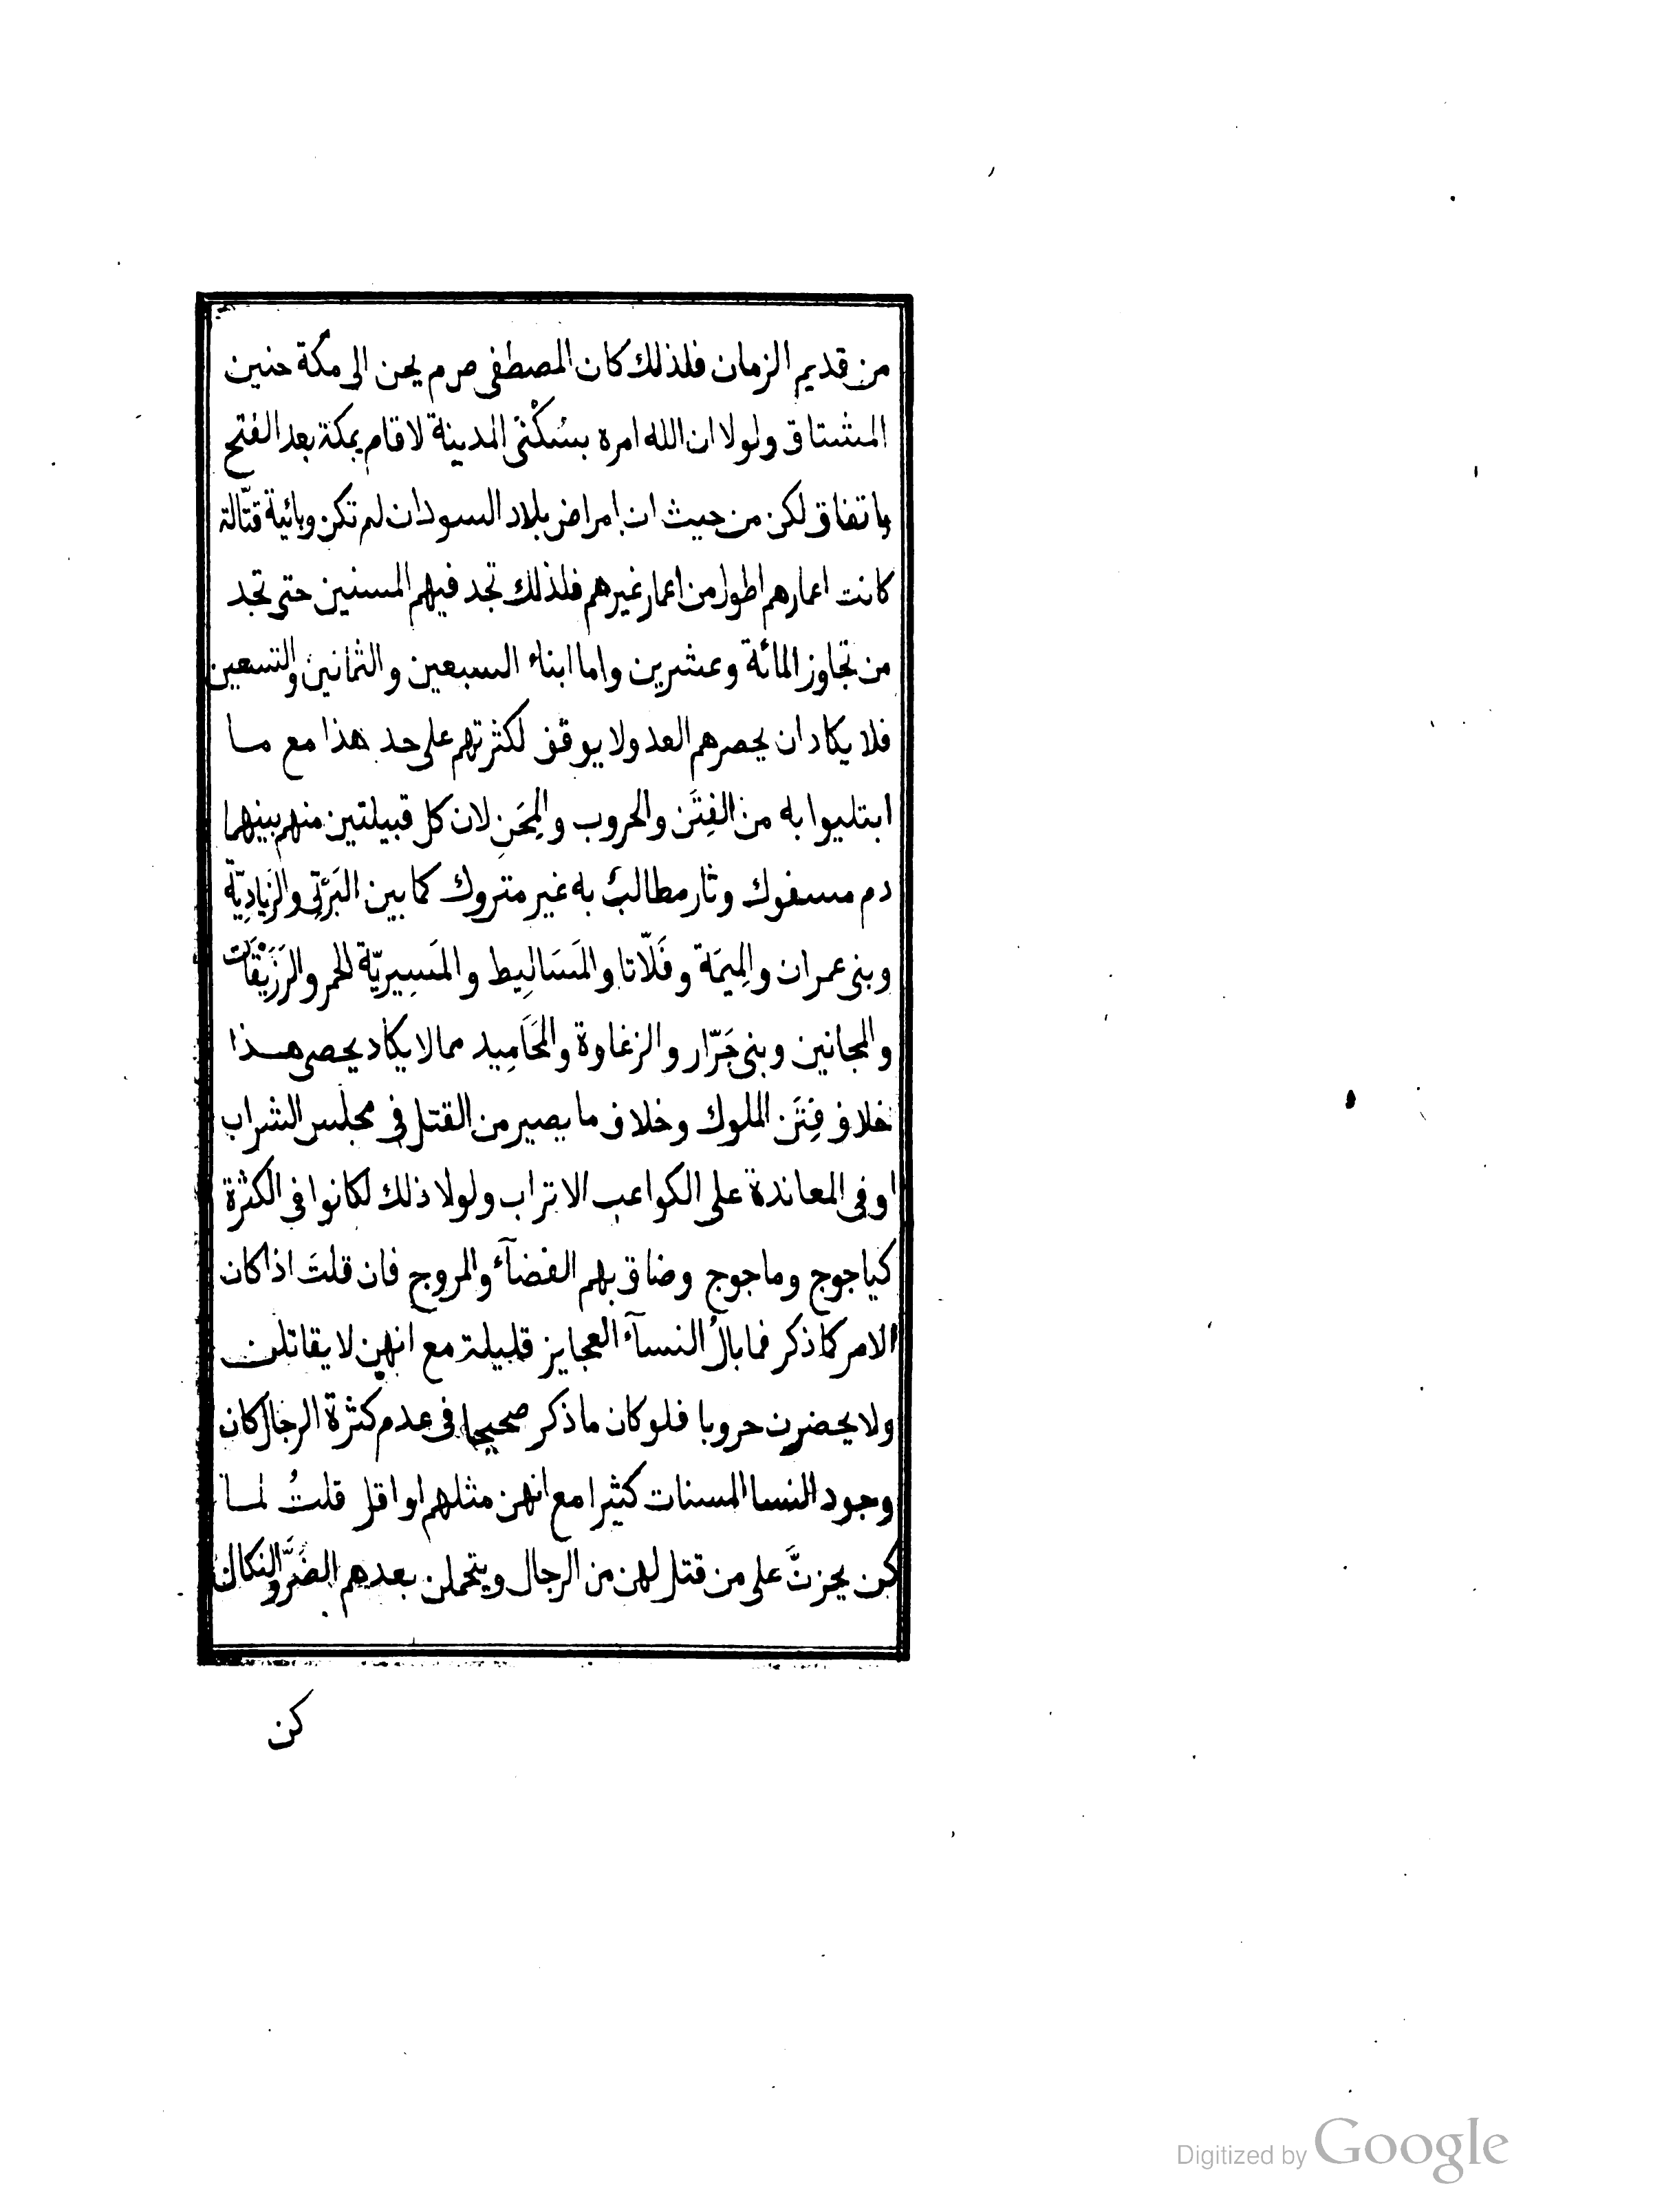 من قديم الزمان فلذلك كان المصطفى صرم يحن الى مكة حنين
المشتاق ولولا ان الله امره بسُكْنَى المدينة لاقام بمكة بعد الفتح
باتفاق لكن من حيث ان امراض بلاد السودان لم تكن وبائية قتّالة
كانت اعمارهم اطول من اعمار غيرهم فلذلك تجد فيهم المسنين حتى تجد
من تجاوز المائة وعشرين واما ابناء السبعين والثمانين والتسعين
فلا يكاد ان يحصرهم العد ولا يوقف لكثرتهم على حد هذا مع ما
ابتليوا به من الفِتَن والحروب والمِحَنِ لان كل قبيلتين منهم بينهما
دم مسفوك وثار مطالبٌ به غير متروك كما بين البَرْتِى والزَيادِيّة
وبنى عمران والمِيمَة وفَلّاتا والمَسَالِيط والمَسِيرِيّة الحمر والرَزَيْقَات
والمجانين وبنى جَرّار والزغاوة والمَحَامِيد مما لا يكاد يحصى هذا
خلاف فِتَن الملوك وخلاف ما يصير من القتل فى مجلس الشراب
او فى المعاندة على الكواعب الاتراب ولولا ذلك لكانوا فى الكثرة
كياجوج وماجوج وضاق بهم الفضآء والمروج فان قلتَ اذا كان
الامر كما ذكر فما بالُ النسآء العجايز قليلة مع انهن لا يقاتلن
ولا يحضرن حروبا فلو كان ما ذكر صحيحا فى عدم كثرة الرجال كان
وجود النسا المسنات كثيرا مع انهن مثلهم او اقل قلتُ لما
كن يحزنَّ على من قتل لهن من الرجال ويتحملن بعدهم الضَرَّ والنكال
كن
Digitized by Google